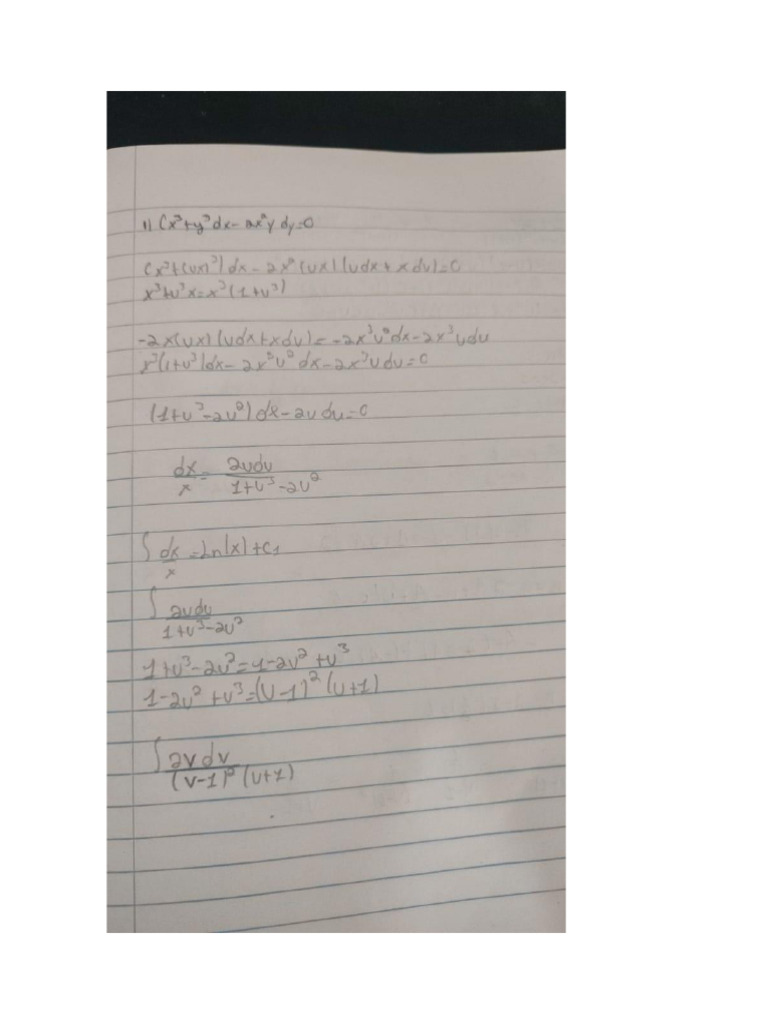 1) (x³+y³dx-2x²y dy=0
(x³+(ux)³)dx-2x²(ux)(udx+xdu)=0
x³+u³x=x³(1+u³)
-2x(ux)(udx+xdu)=-2x³u²dx-2x³udu
x³(1+u³)dx-2x³u²dx-2x³udu=0
(1+u³-2u²)dx-2udu=0
dx/x=2udu/1+u³-2u²
∫dx/x=Ln(x)+C1
∫2udu/1+u³-2u²
1+u³-2u²=1-2u²+u³
1-2u²+u³=(u-1)²(u+1)
∫2vdv/(v-1)²(u+1)